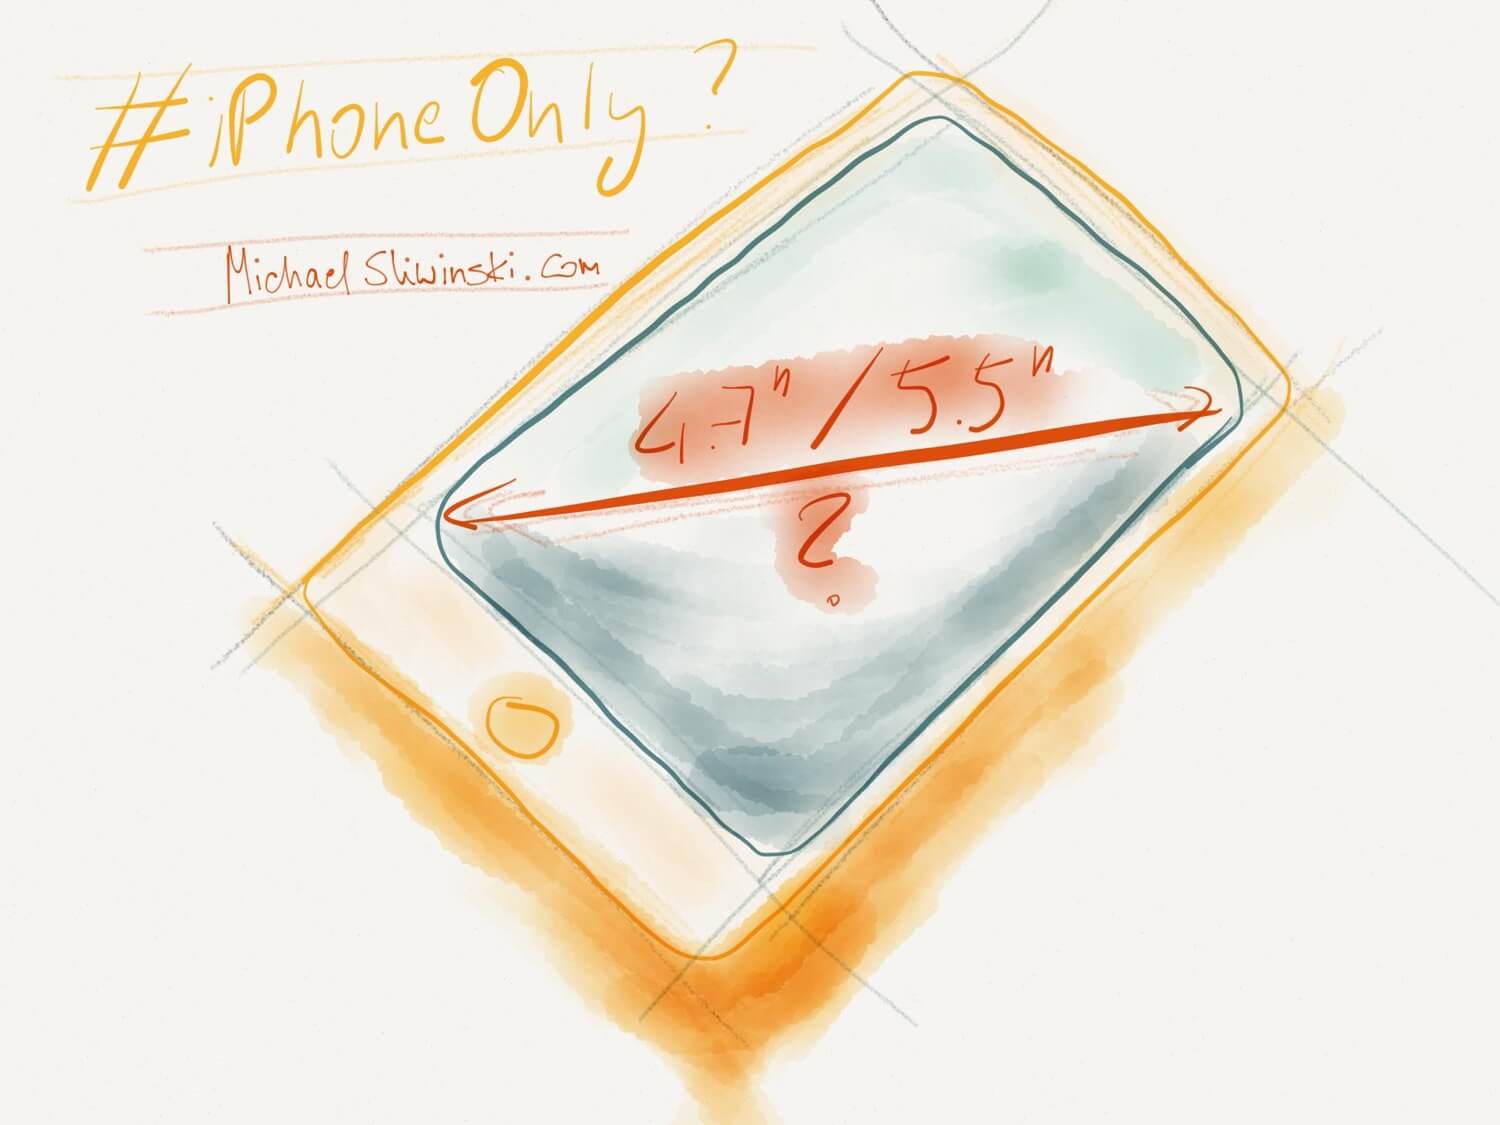 #iPhoneOnly?
MichaelSliwinski.com
4.7"/5.5"
?